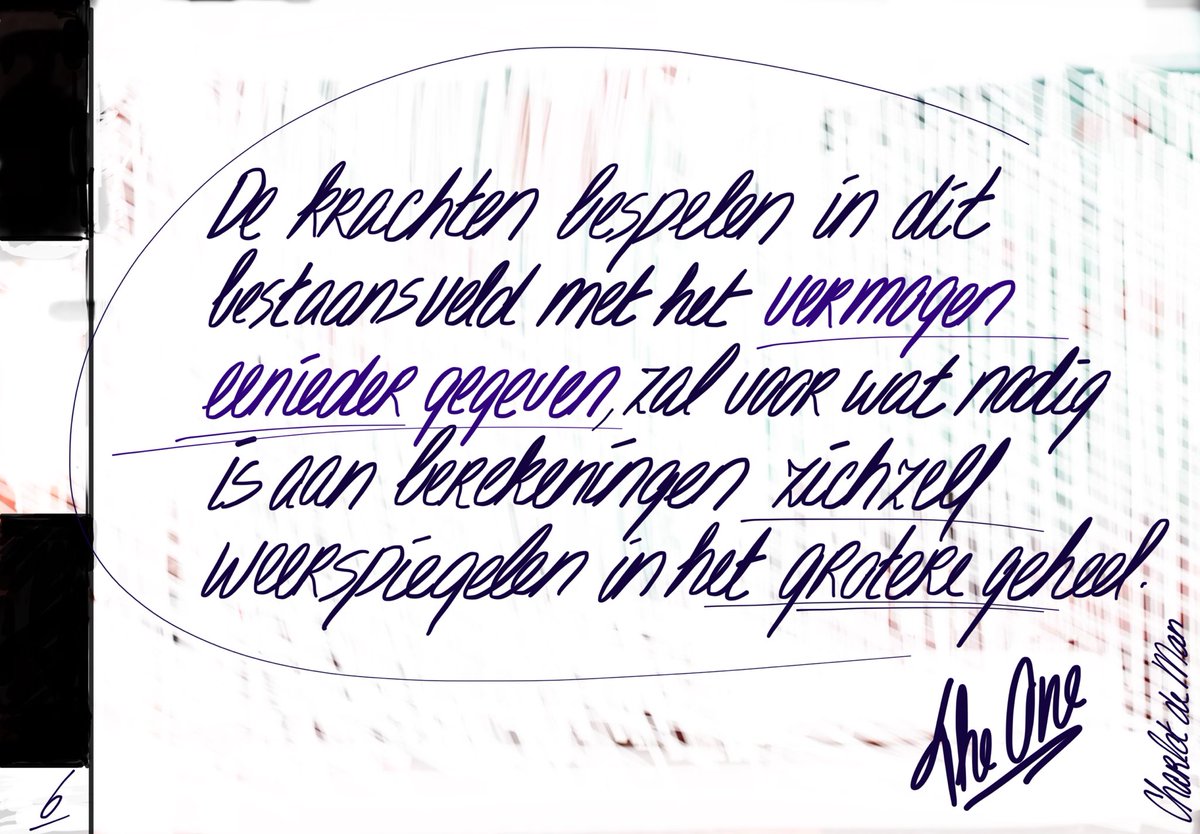 De krachten bespelen in dit
bestaansveld met het vermogen
eenieder gegeven, zal voor wat nodig
is aan berekeningen zichzelf
weerspiegelen in het grotere geheel.
The One
Charlot de Man
6